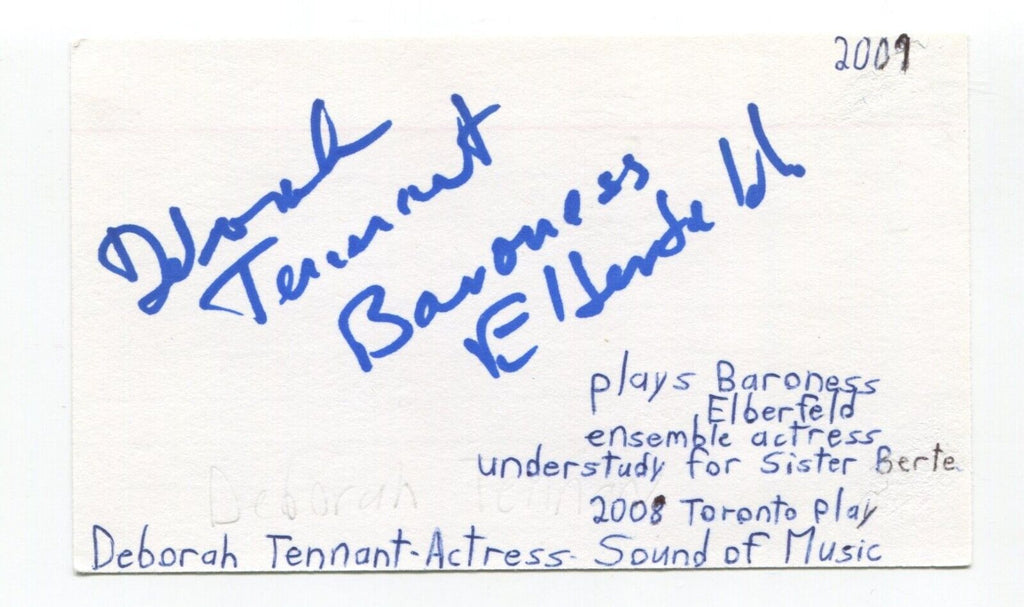 2009
Deborah
Tennant
Baroness
Elberfeld
plays Baroness
Elberfeld
ensemble actress
understudy for Sister Berte
Deborah Tennant
2008 Toronto Play
Deborah Tennant-Actress- Sound of Music